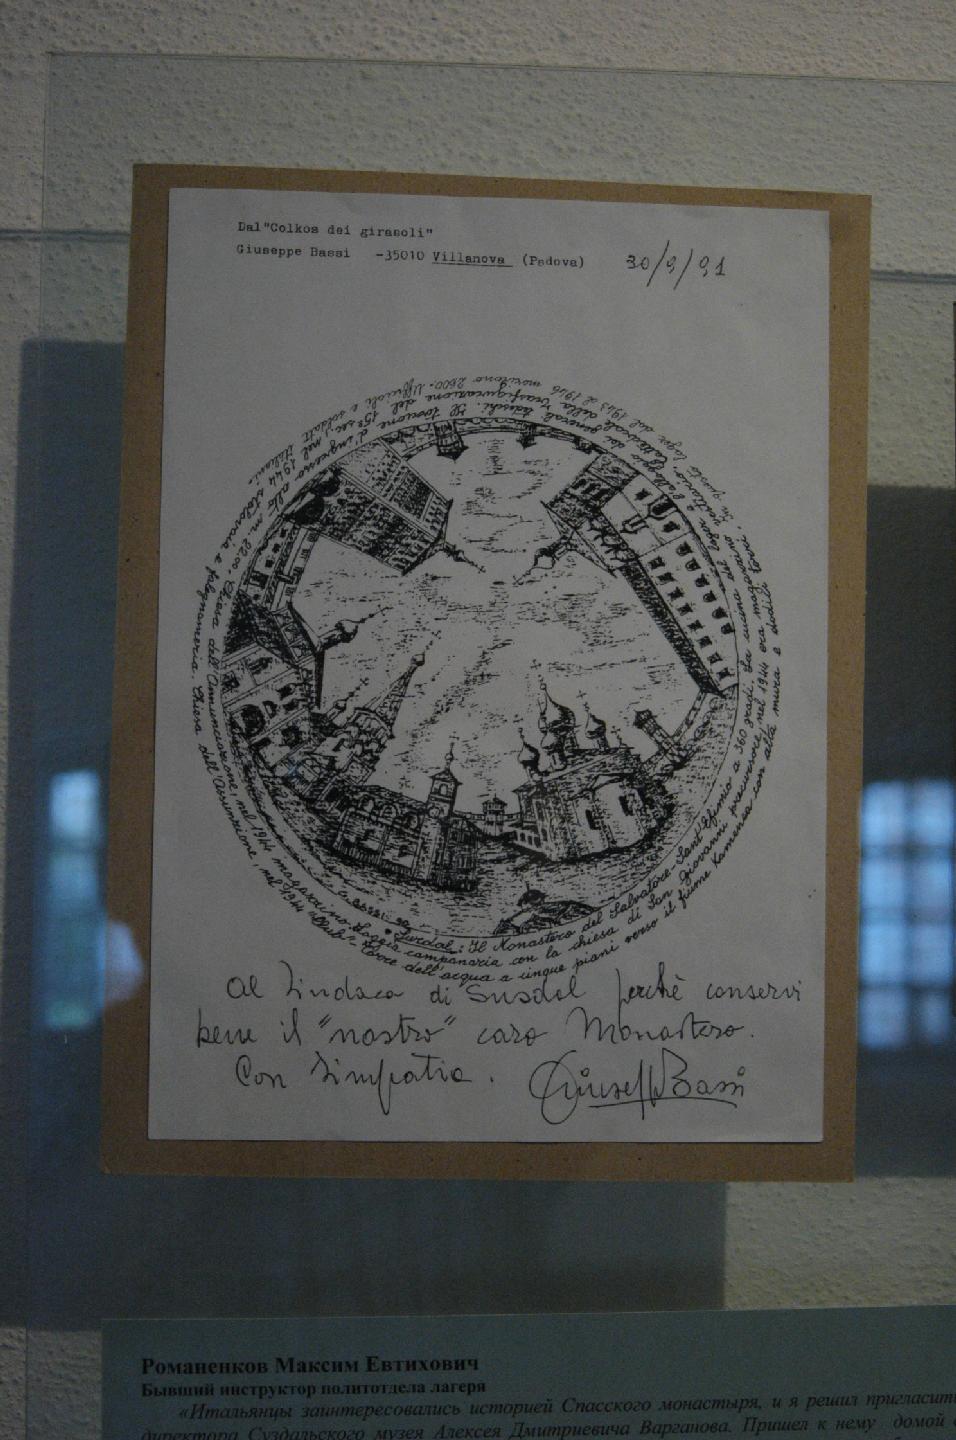 Dal "Colkos dei girasoli"
Giuseppe Bassi -35010 Villanova (Padova) 30/9/91
Suzdal: Il Monastero del Salvatore - Sant'Efimio a 360 gradi. La cucina
Loggia campanaria con la chiesa di San Giovanni precursore, nel 1944 era magazzino
Torre dell'acqua a cinque piani verso il fiume Kamenka con alte mura e dodici torri. In questo lager dal 1943 al 1946 morirono 2600 Ufficiali e soldati Italiani.
Cattedrale della Trasfigurazione del
generali tedeschi. Il torrione d'ingresso alto m. 22.00 Chiesa dell'Annunciazione, nel 1944 magazzino.
nel 1944 falegnameria. Chiesa dell'Assunzione nel 1944
Al Sindaco di Susdal perchè conservi
bene il "nostro" caro Monastero.
Con simpatia. Giuseppe Bassi
Романенков Максим Евтихович
Бывший инструктор политотдела лагеря
«Итальянцы заинтересовались историей Спасского монастыря, и я решил пригласить
директора Суздальского музея Алексея Дмитриевича Варганова. Пришел к нему домой